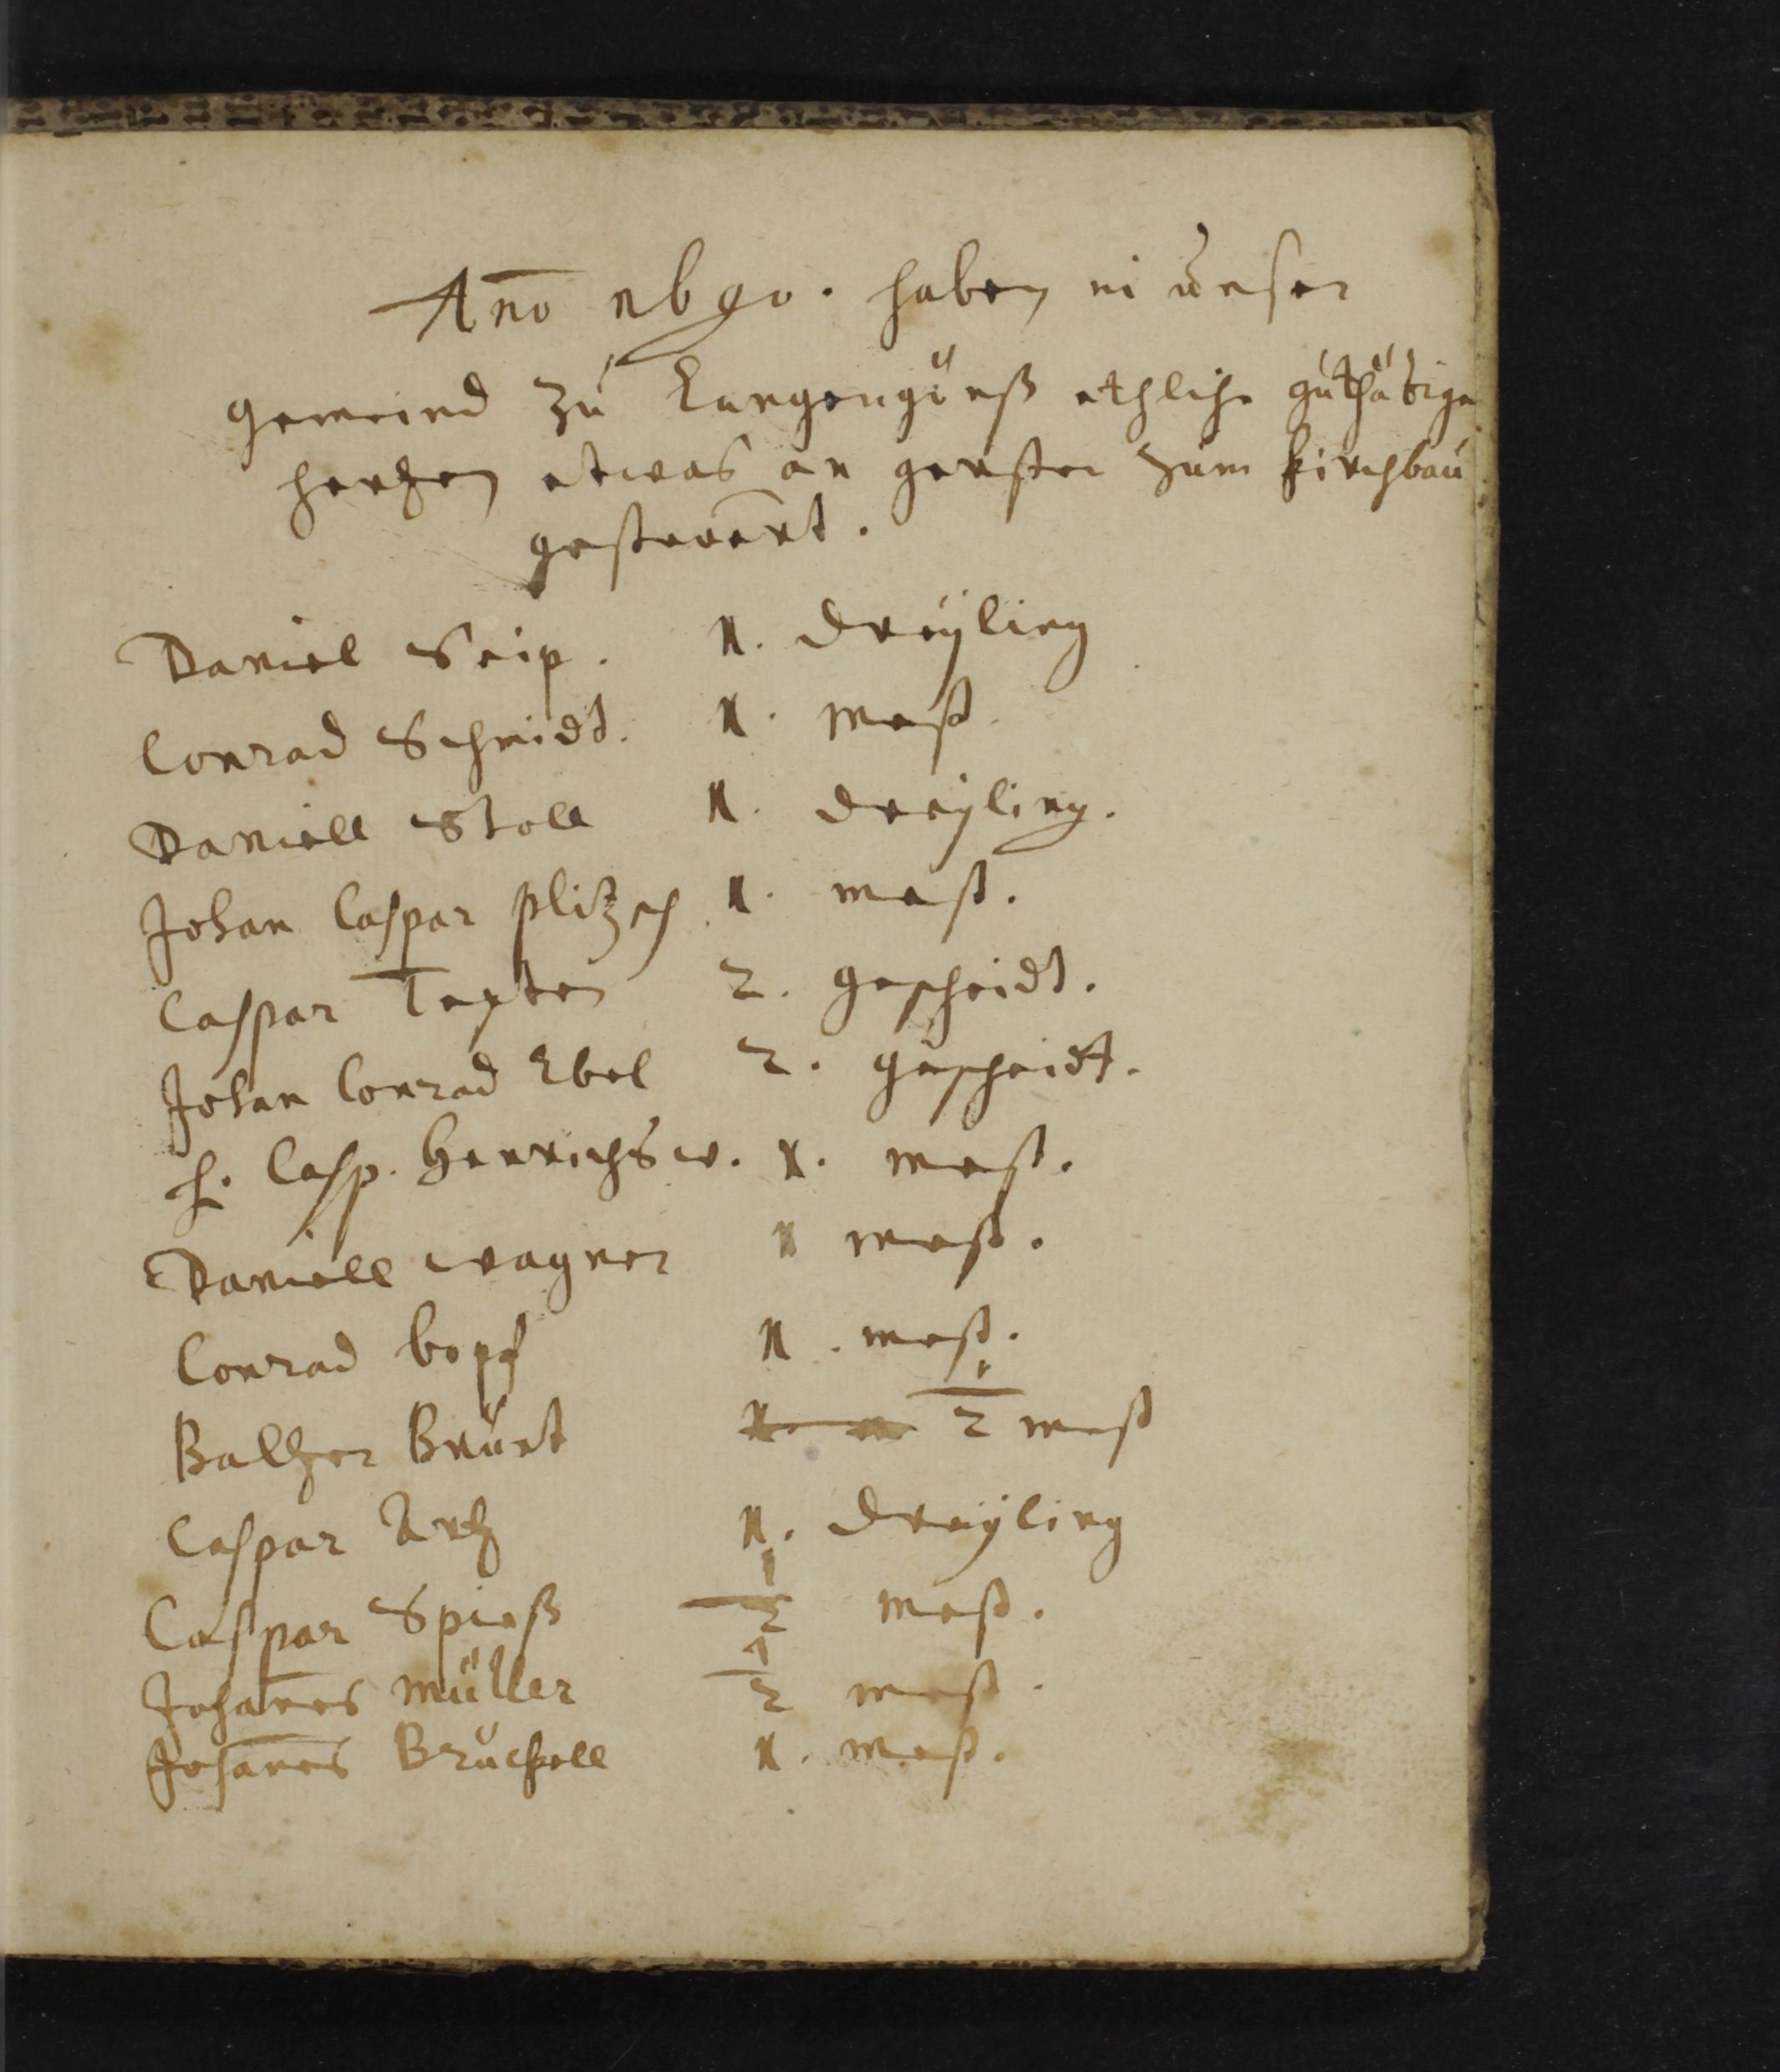 Ano 1690. haben in unser
gemeind zu Langengönß etzliche guthätige
hertzen etwas an gersten zum kirchbau
gestewert.
Daniel Seip. 1. dreyling
Conrad Schmidt. 1. mest.
Daniell Stoll 1. dreyling.
Johan Caspar plitzsch 1. mest.
Caspar 2. gescheidt.
Johan Conrad Ebel 2. gescheidt.
H. Casp. Henrichs w. 1. mest.
Daniell wagner 1 mest.
Conrad bopf 1. mest.
Baltzer 1/2 mest
Caspar Artz 1. dreyling
Caspar Spieß 1/2 mest.
Johanes müller 1/2 mest.
Johanes Brückell 1. mest.